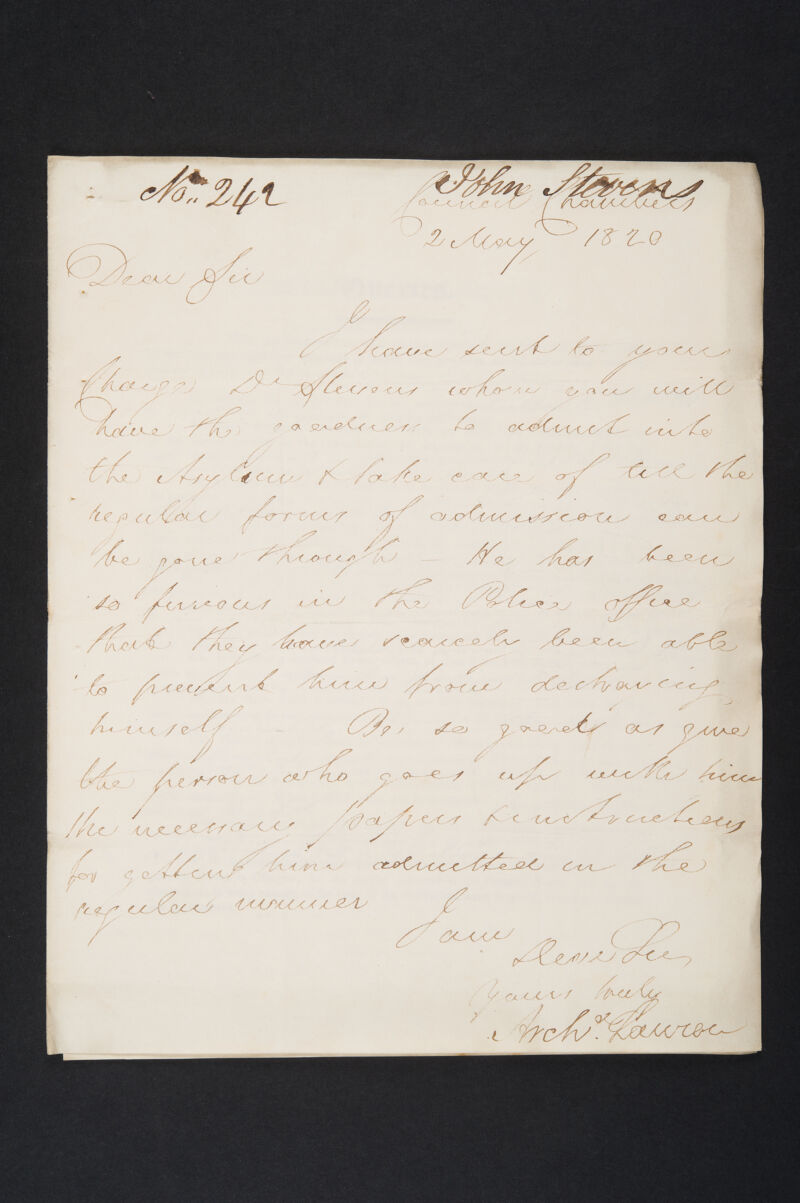 No. 242
John Stevens
Council Chambers
2 May 1820
Dear Sir
I have sent to your
Charge Dr Stevens whom you will
have the goodness to admit into
the Asylum & take care of till the
regular forms of admission can
be gone through – He has been
so furious in the Police office
that they have scarcely been able
to prevent him from destroying
himself – Be so good as give
the person who goes up with him
the necessary papers & instructions
for getting him admitted in the
regular manner
I am
Dear Sir
Yours truly
Archd.